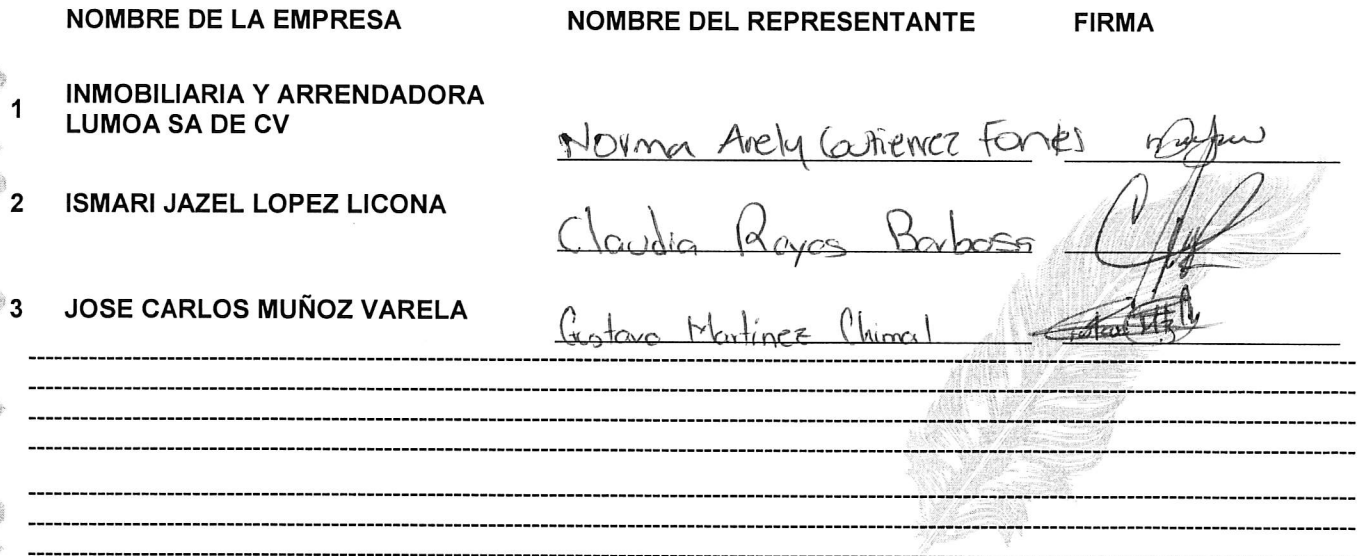 NOMBRE DE LA EMPRESA NOMBRE DEL REPRESENTANTE FIRMA
1 INMOBILIARIA Y ARRENDADORA
LUMOA SA DE CV
Norma Arely Gutierrez
2 ISMARI JAZEL LOPEZ LICONA
Claudia Rayas Barbosa
3 JOSE CARLOS MUÑOZ VARELA
Gustavo Martinez Chimal